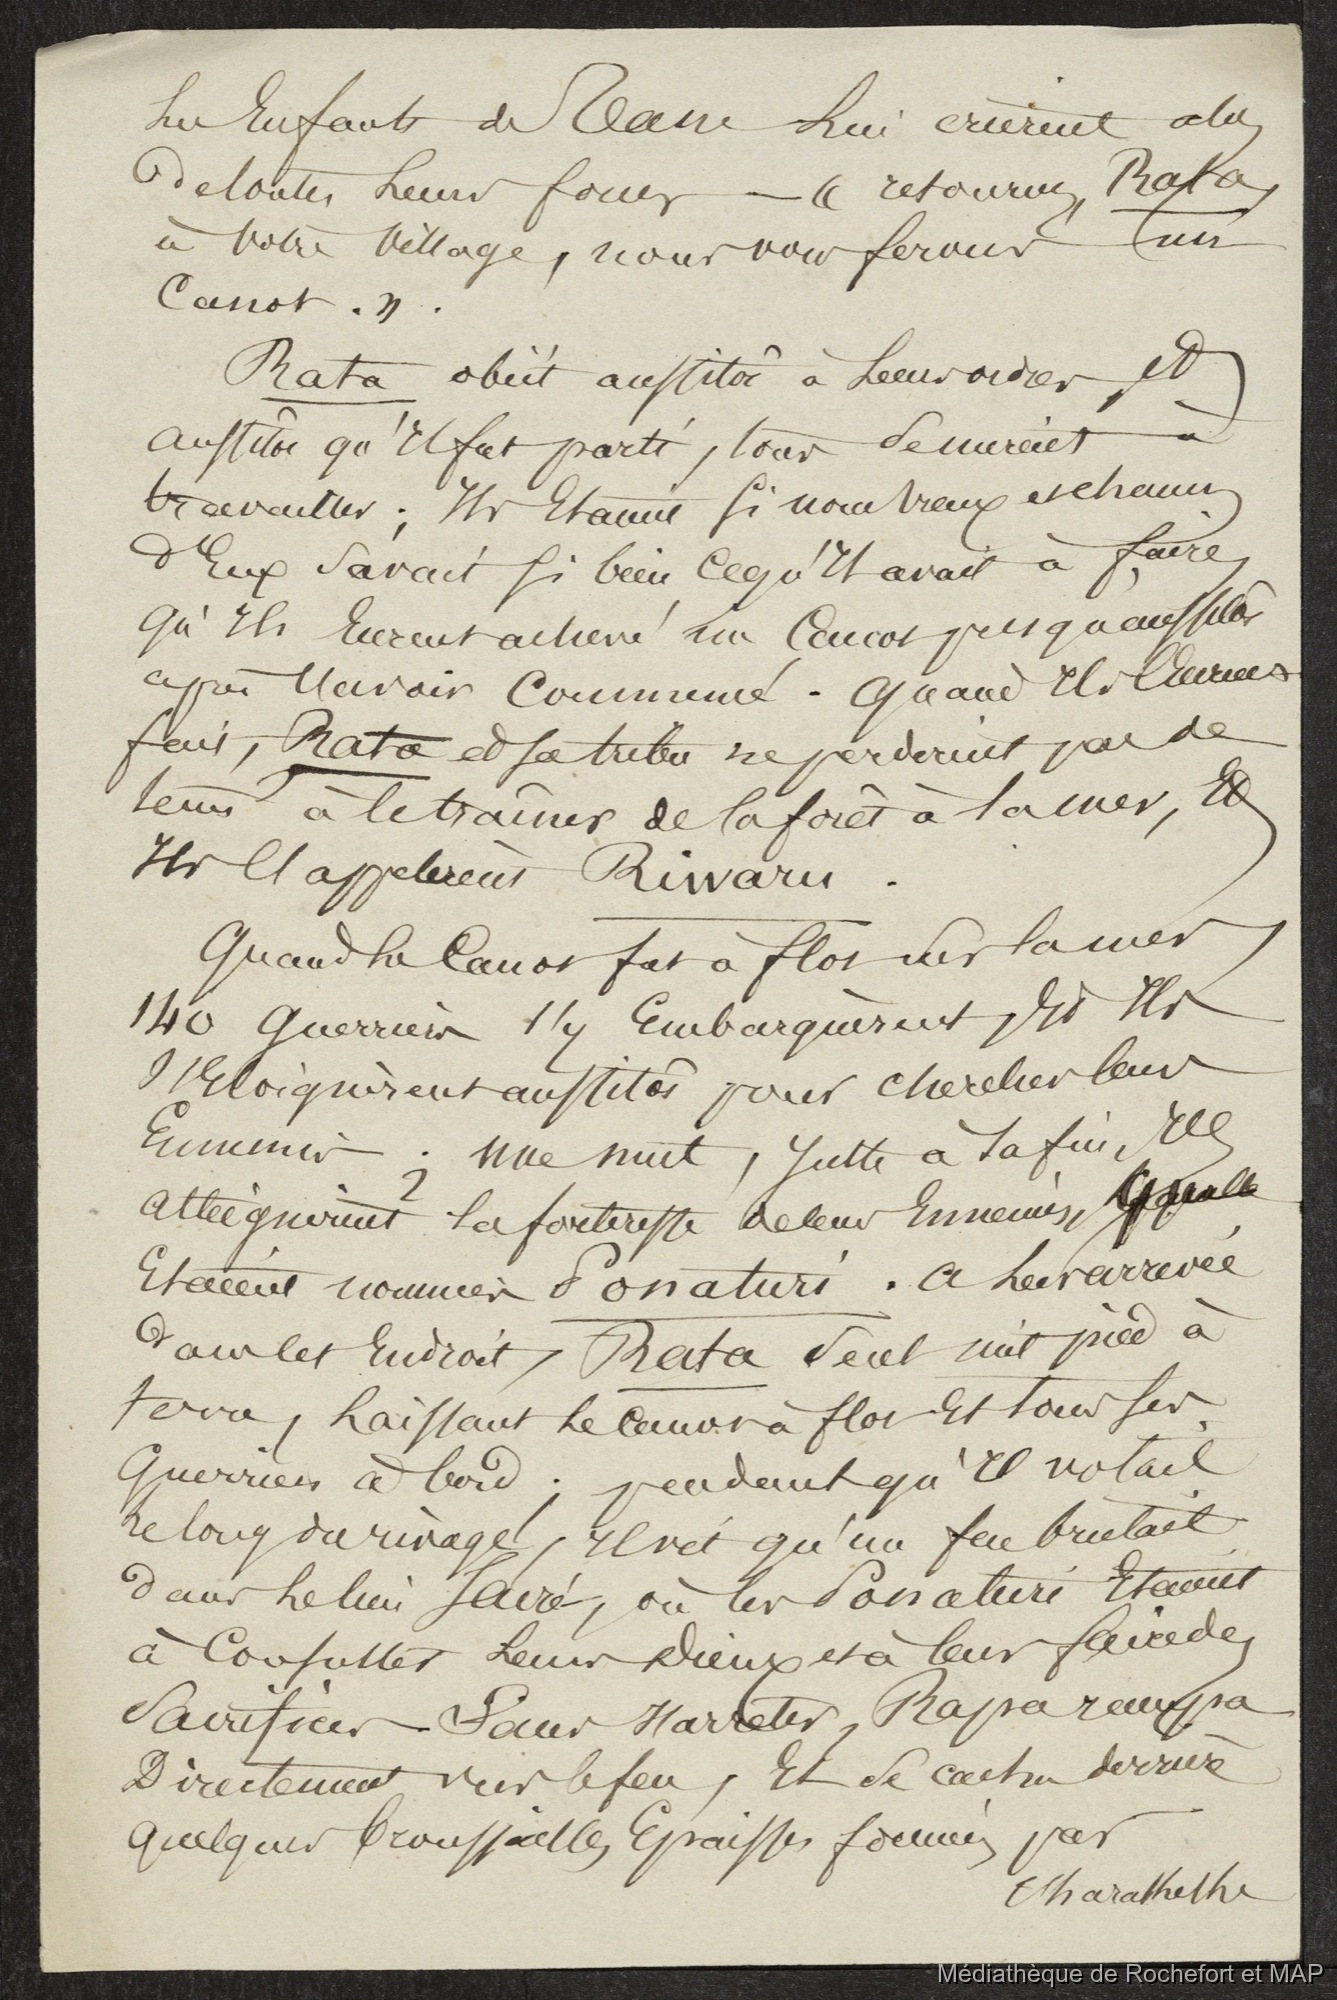 Les Enfants de Tane Lui crièrent alors
de toutes Leurs forces — « retournez, Rata,
à votre village, nous vous ferons un
Canot . » .
Rata obéit aussitôt à Leurs ordres, et
aussitôt qu'Il fut parti, tous se mirent à
travailler ; Ils Etaient si nombreux et chacun
d'Eux savait si bien ce qu'Il avait à faire,
qu'Ils Eurent achevé un Canot presqu'aussitôt
après l'avoir Commencé . Quand Ils l'Eurent
fait, Rata et sa tribu ne perdirent pas de
tems à le traîner de la forêt à la mer, Et
Ils l'appelèrent Riwaru .
Quand le Canot fut à flot sur la mer,
140 Guerriers s'y Embarquèrent, Et Ils
s'Eloignèrent aussitôt pour chercher leurs
Ennemis ; une nuit, Juste à la fin, Ils
atteignirent la forteresse de leurs Ennemis,
Etaient nommés Ponaturi . A leur arrivée
dans cet Endroit, Rata seul mit pied à
terre, Laissant le Canot à flot Et tous ses
Guerriers à bord ; pendant qu'Il
le long du rivage, Il vit qu'un feu brulait
dans le lieu Sacré, où les Ponaturi Etaient
à Consulter Leurs Dieux et à leur faire des
Sacrifices — Sans s'arrêter, Rapa rampa
Directement vers le feu, Et se cacha derrière
quelques broussailles Epaisses formées par